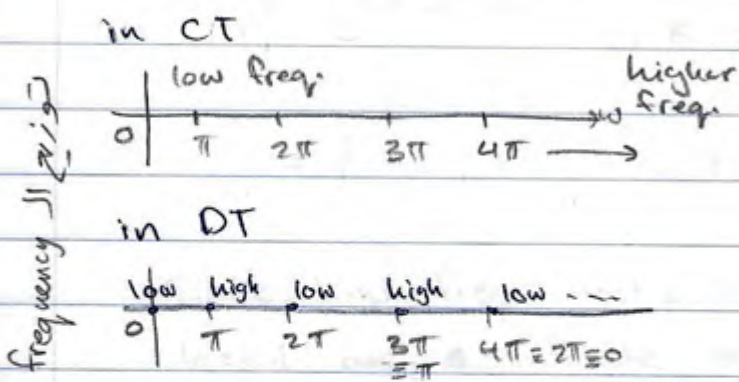 in CT
low freq.
higher
freq.
0 π 2π 3π 4π ⟶
in DT
low high low high low ----
0 π 2π 3π 4π≡2π≡0
≡π
frequency ال